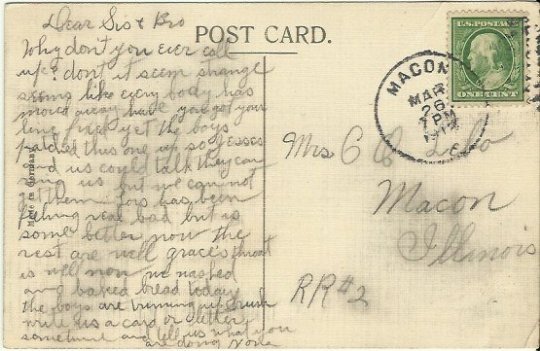 Dear Sis & Bro
Why don't you ever call
up? don't it seem strange
seems like every body has
moved away have you got your
line fixed yet the boys
patched this one up so Jesses
and us could talk they can
ring us but we can not
get them. has been
feeling real bad but is
some better now the
rest are well grace's throat
is well now we washed
and baked bread today
the boys are trimming up brush
write us a card or letter
sometime and tell us what you
are doing Nora
Made in Germany
POST CARD.
MACON
MAR
26
PM
U.S. POSTAGE
ONE CENT
Mrs C
Macon
Illinois
RR#2